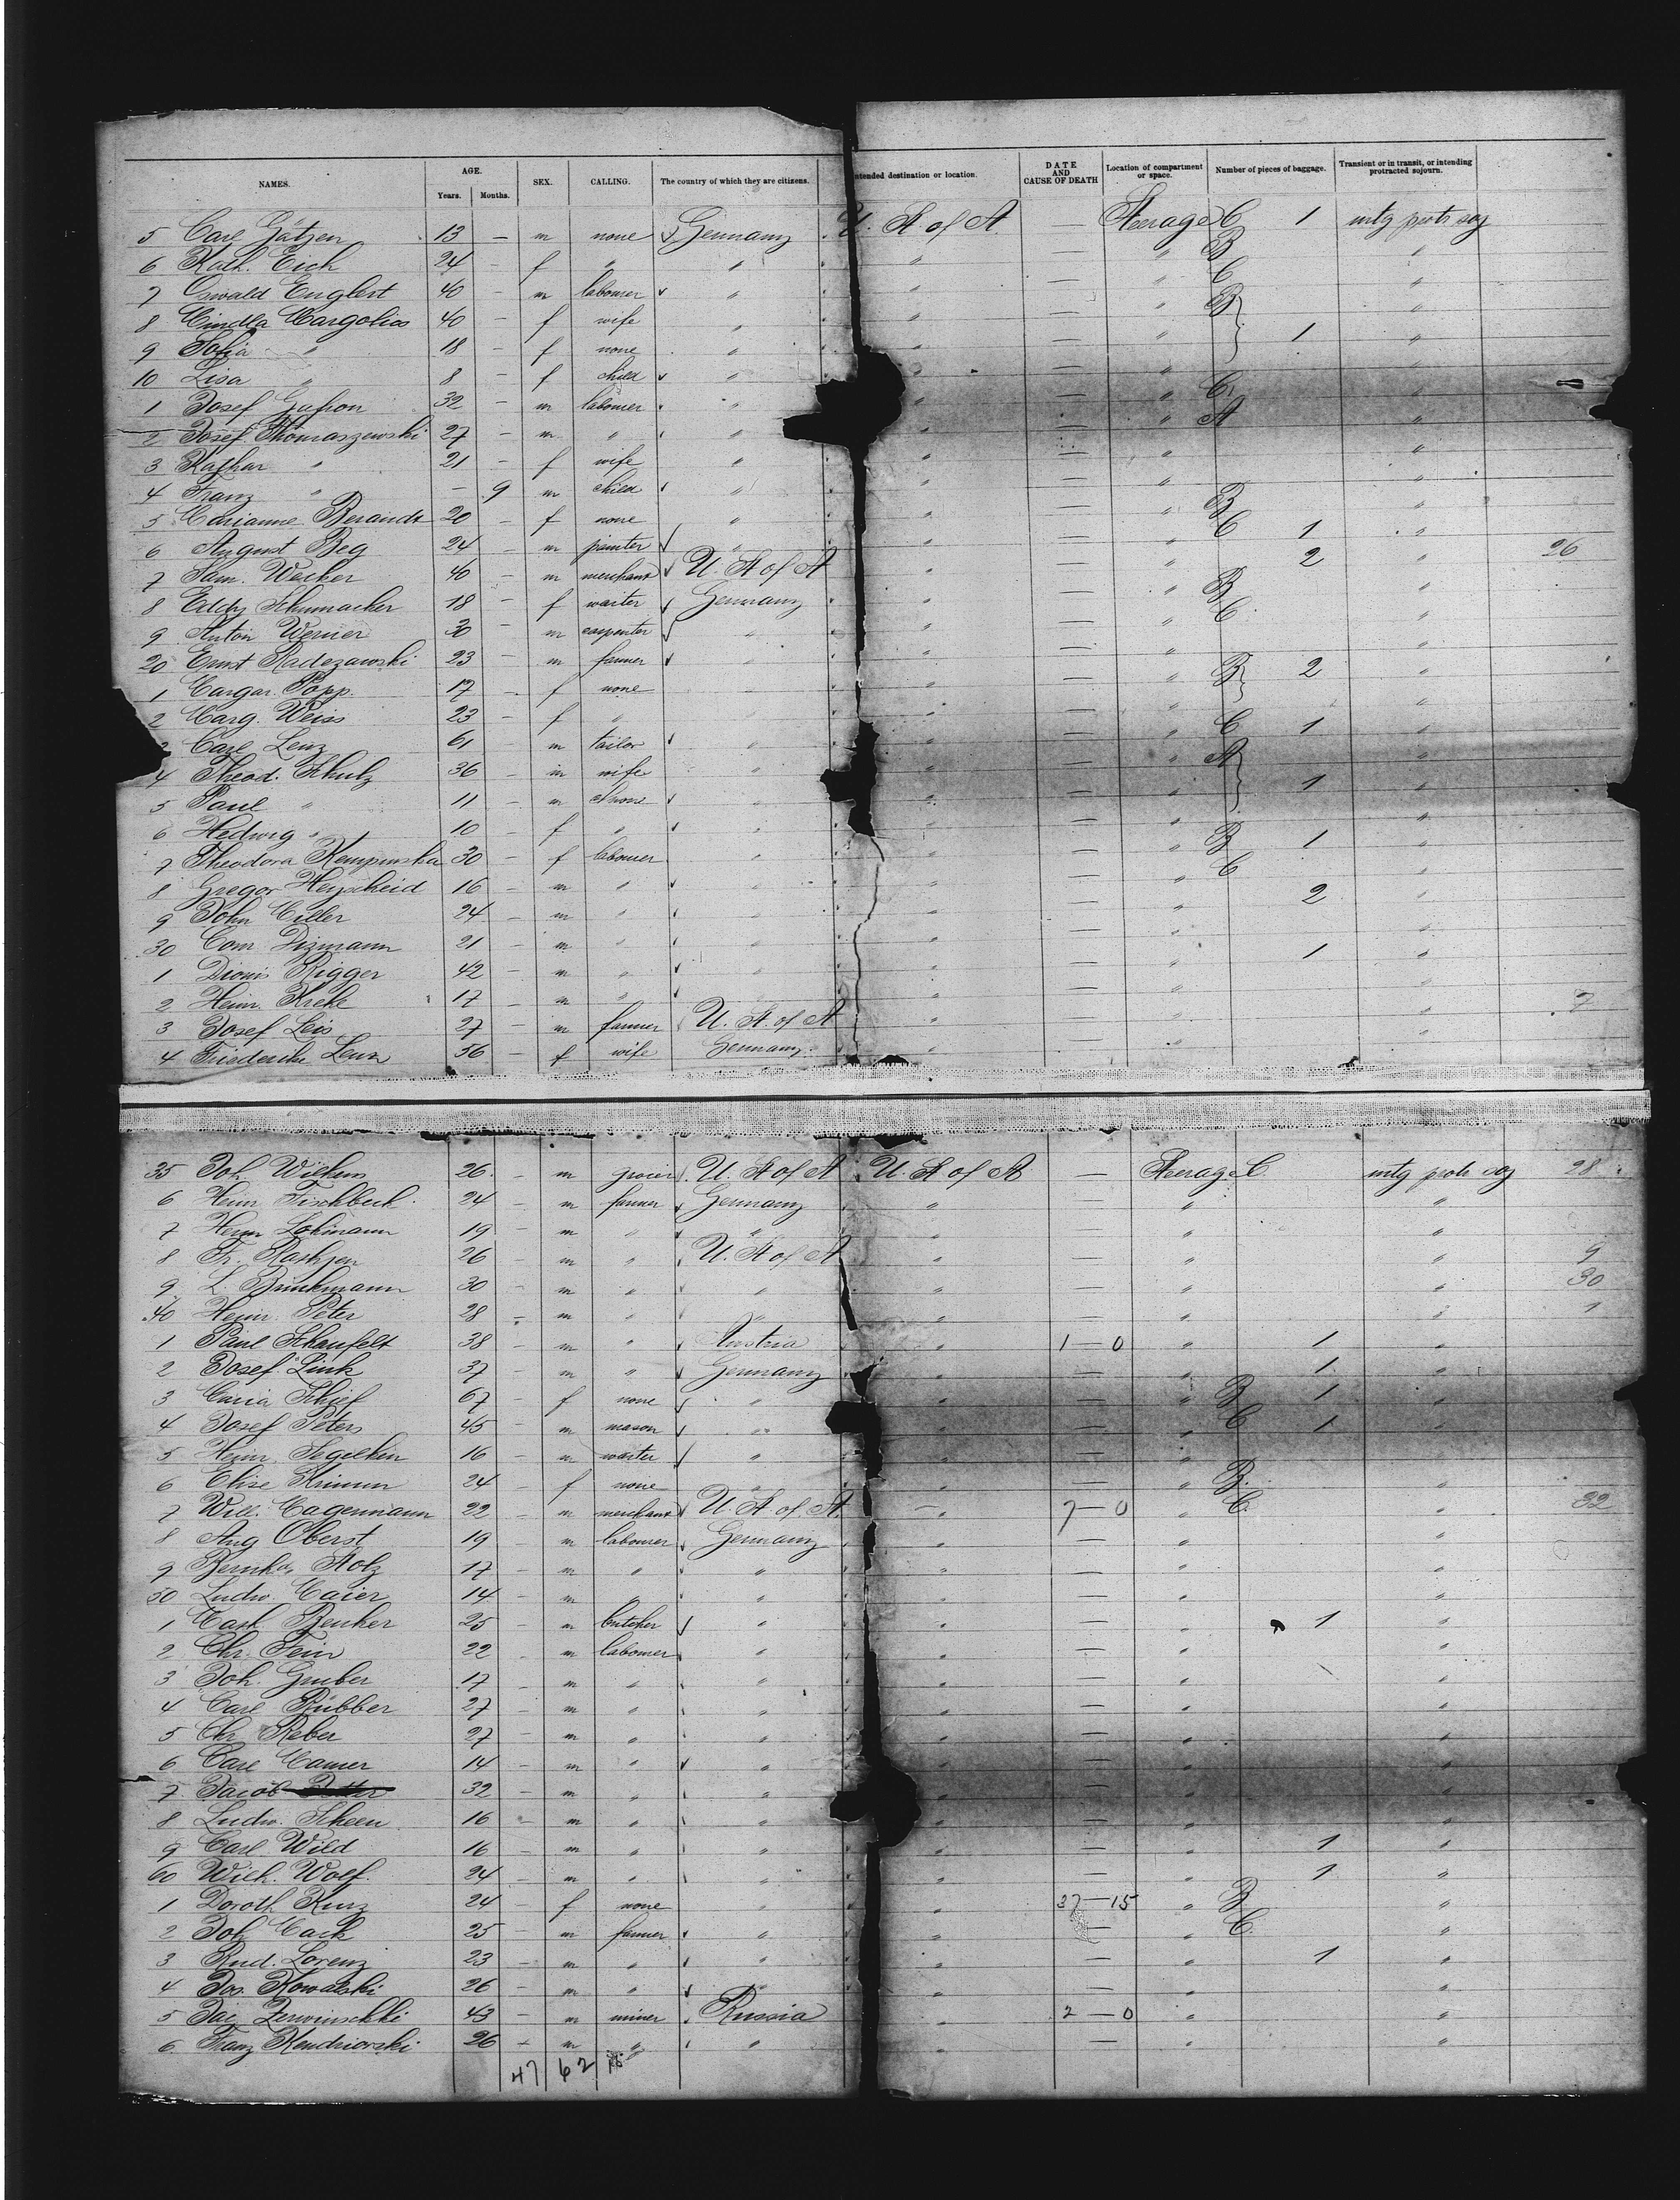 NAMES. AGE. Years. Months. SEX. CALLING. The country of which they are citizens. ntended destination or location. DATE AND CAUSE OF DEATH Location of compartment or space. Number of pieces of baggage. Transient or in transit, or intending protracted sojourn.
5 Carl Gätjen 13 — m none Germany U. St of A. — Steerage C 1 intg protr soj
6 Kath. Eich 24 — f " " " — " B "
7 Oswald Englert 40 — m labourer " " — " C "
8 40 — f wife " " — " B "
9 Sofia " 18 — f none " " — " 1 "
10 Lisa " 8 — f child " " — " "
1 Josef 32 — m labourer " " — " C "
2 Josef Thomaszewski 27 — m " " " — " A "
3 Kathar " 21 — f wife " " — " "
4 Franz " — 9 m child " " — " "
5 Marianne 20 — f none " " — " B "
6 August Beg 24 — m painter " " — " C 1 "
7 Sam. Wecker 40 — m merchant U. St of A " — " 2 " 26
8 Eddy Schumacher 18 — f waiter Germany " — " B "
9 Anton Werner 30 — m carpenter " " — " C "
20 Ernst Radezawski 23 — m farmer " " — " "
1 Margar. Popp. 17 — f none " " — " B 2 "
2 Marg. Weiss 23 — f " " " — " "
3 Carl Lenz 61 m tailor " " — " C 1 "
4 Theod. Schulz 36 — m wife " " — " A "
5 Paul " 11 — m " " — " 1 "
6 Hedwig " 10 — f " " " — " "
7 Theodora Kempinska 30 — f labourer " " — " B 1 "
8 Gregor Heyscheid 16 — m " " " — " C "
9 John Miller 24 — m " " " — " 2 "
30 Com Dizmann 21 — m " " " — " "
1 Dionis Rigger 42 — m " " " — " 1 "
2 Heinr. Kreke 17 — m " " " — " "
3 Josef Leis 27 — m farmer U. St. of A " — " " 7
4 Friederike 56 — f wife Germany " — " "
35 Joh Wilkens 26 — m grocer U. St of A U. St of A — Steerage C. intg protr soj 28
6 Heinr Fischbeck 24 — m farmer Germany " — " "
7 Herm Lohmann 19 — m " " " — " "
8 Fr. Rathjen 26 — m " U. St of A " — " " 9
9 L. Brinkmann 30 — m " " " — " " 30
40 Heinr. Peter 28 — m " " " — " " 1
1 Paul Schaufelt 38 — m " Austria " 1—0 " 1 "
2 Josef Link 37 — m " Germany " — " 1 "
3 Maria 67 — f none " " — " B 1 "
4 Josef Peters 45 — m mason " " — " C 1 "
5 Heinr. Segelken 16 — m waiter " " — " "
6 Elise 24 — f none " " — " B. "
7 Will. Hagemann 22 — m merchant U. St. of A. " 7—0 " C. " 32
8 Aug Oberst 19 — m labourer Germany " — " "
9 Stolz 17 — m " " " — " "
50 Ludw. Maier 14 — m " " " — " "
1 Benker 25 — m butcher " " — " 1 "
2 Chr. Fein 22 — m labourer " " — " "
3 Joh. Gruber 17 — m " " " — " "
4 Carl Rübber 27 — m " " " — " "
5 Chr. Reber 27 — m " " " — " "
6 Carl 14 — m " " " — " "
7 Jacob 32 — m " " " — " "
8 Ludw. Scheen 16 — m " " " — " "
9 Carl Wild 16 — m " " " — " 1 "
60 Wilh. Wolf. 24 — m " " " — " 1 "
1 Doroth Kurz 24 — f none " " 37—15 " B "
2 Joh Mack 25 — m farmer " " — " C. "
3 Rud. Lorenz 23 — m " " " — " 1 "
4 Jos. Kowalski 26 — m " " " — " "
5 Jac 43 — m miner Russia " 2—0 " "
6 Franz Kendriorski 26 — m " " " — " "
47 62 18